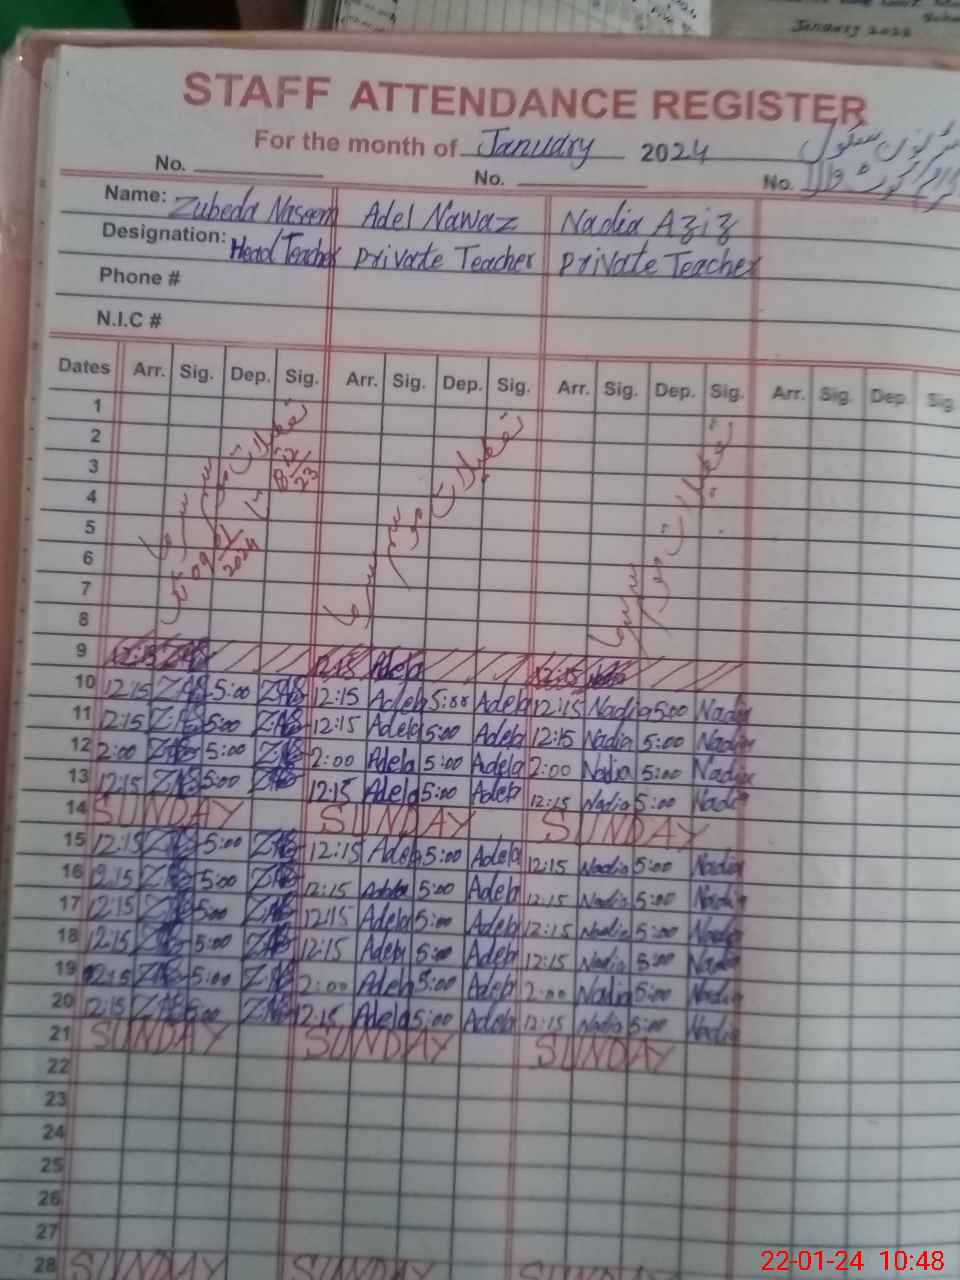 January 2022
STAFF ATTENDANCE REGISTER
For the month of January 2024
No. No. No.
Name: Zubeda Naseem Adel Nawaz Nadia Aziz
Designation: Head Teacher Private Teacher Private Teacher
Phone #
N.I.C #
Dates Arr. Sig. Dep. Sig. Arr. Sig. Dep. Sig. Arr. Sig. Dep. Sig. Arr. Sig. Dep. Sig.
1
2
3
4
5
6
7
8
تعطیلات موسم سرما
تعطیلات موسم سرما
تعطیلات موسم سرما
9 12:15 12:15 Adela 12:15
10 12:15 ZAB 5:00 ZAB 12:15 Adela 5:00 Adela 12:15 Nadia 5:00 Nadia
11 12:15 ZAB 5:00 ZAB 12:15 Adela 5:00 Adela 12:15 Nadia 5:00 Nadia
12 2:00 ZAB 5:00 ZAB 2:00 Adela 5:00 Adela 2:00 Nadia 5:00 Nadia
13 12:15 ZAB 5:00 ZAB 12:15 Adela 5:00 Adela 12:15 Nadia 5:00 Nadia
14 SUNDAY SUNDAY SUNDAY
15 12:15 ZAB 5:00 ZAB 12:15 Adela 5:00 Adela 12:15 Nadia 5:00 Nadia
16 12:15 ZAB 5:00 ZAB 12:15 Adela 5:00 Adela 12:15 Nadia 5:00 Nadia
17 12:15 ZAB 5:00 ZAB 12:15 Adela 5:00 Adela 12:15 Nadia 5:00 Nadia
18 12:15 ZAB 5:00 ZAB 12:15 Adela 5:00 Adela 12:15 Nadia 5:00 Nadia
19 12:15 ZAB 5:00 ZAB 2:00 Adela 5:00 Adela 2:00 Nadia 5:00 Nadia
20 12:15 ZAB 5:00 ZAB 12:15 Adela 5:00 Adela 12:15 Nadia 5:00 Nadia
21 SUNDAY SUNDAY SUNDAY
22
23
24
25
26
27
28 SUNDAY SUNDAY SUNDAY
22-01-24 10:48